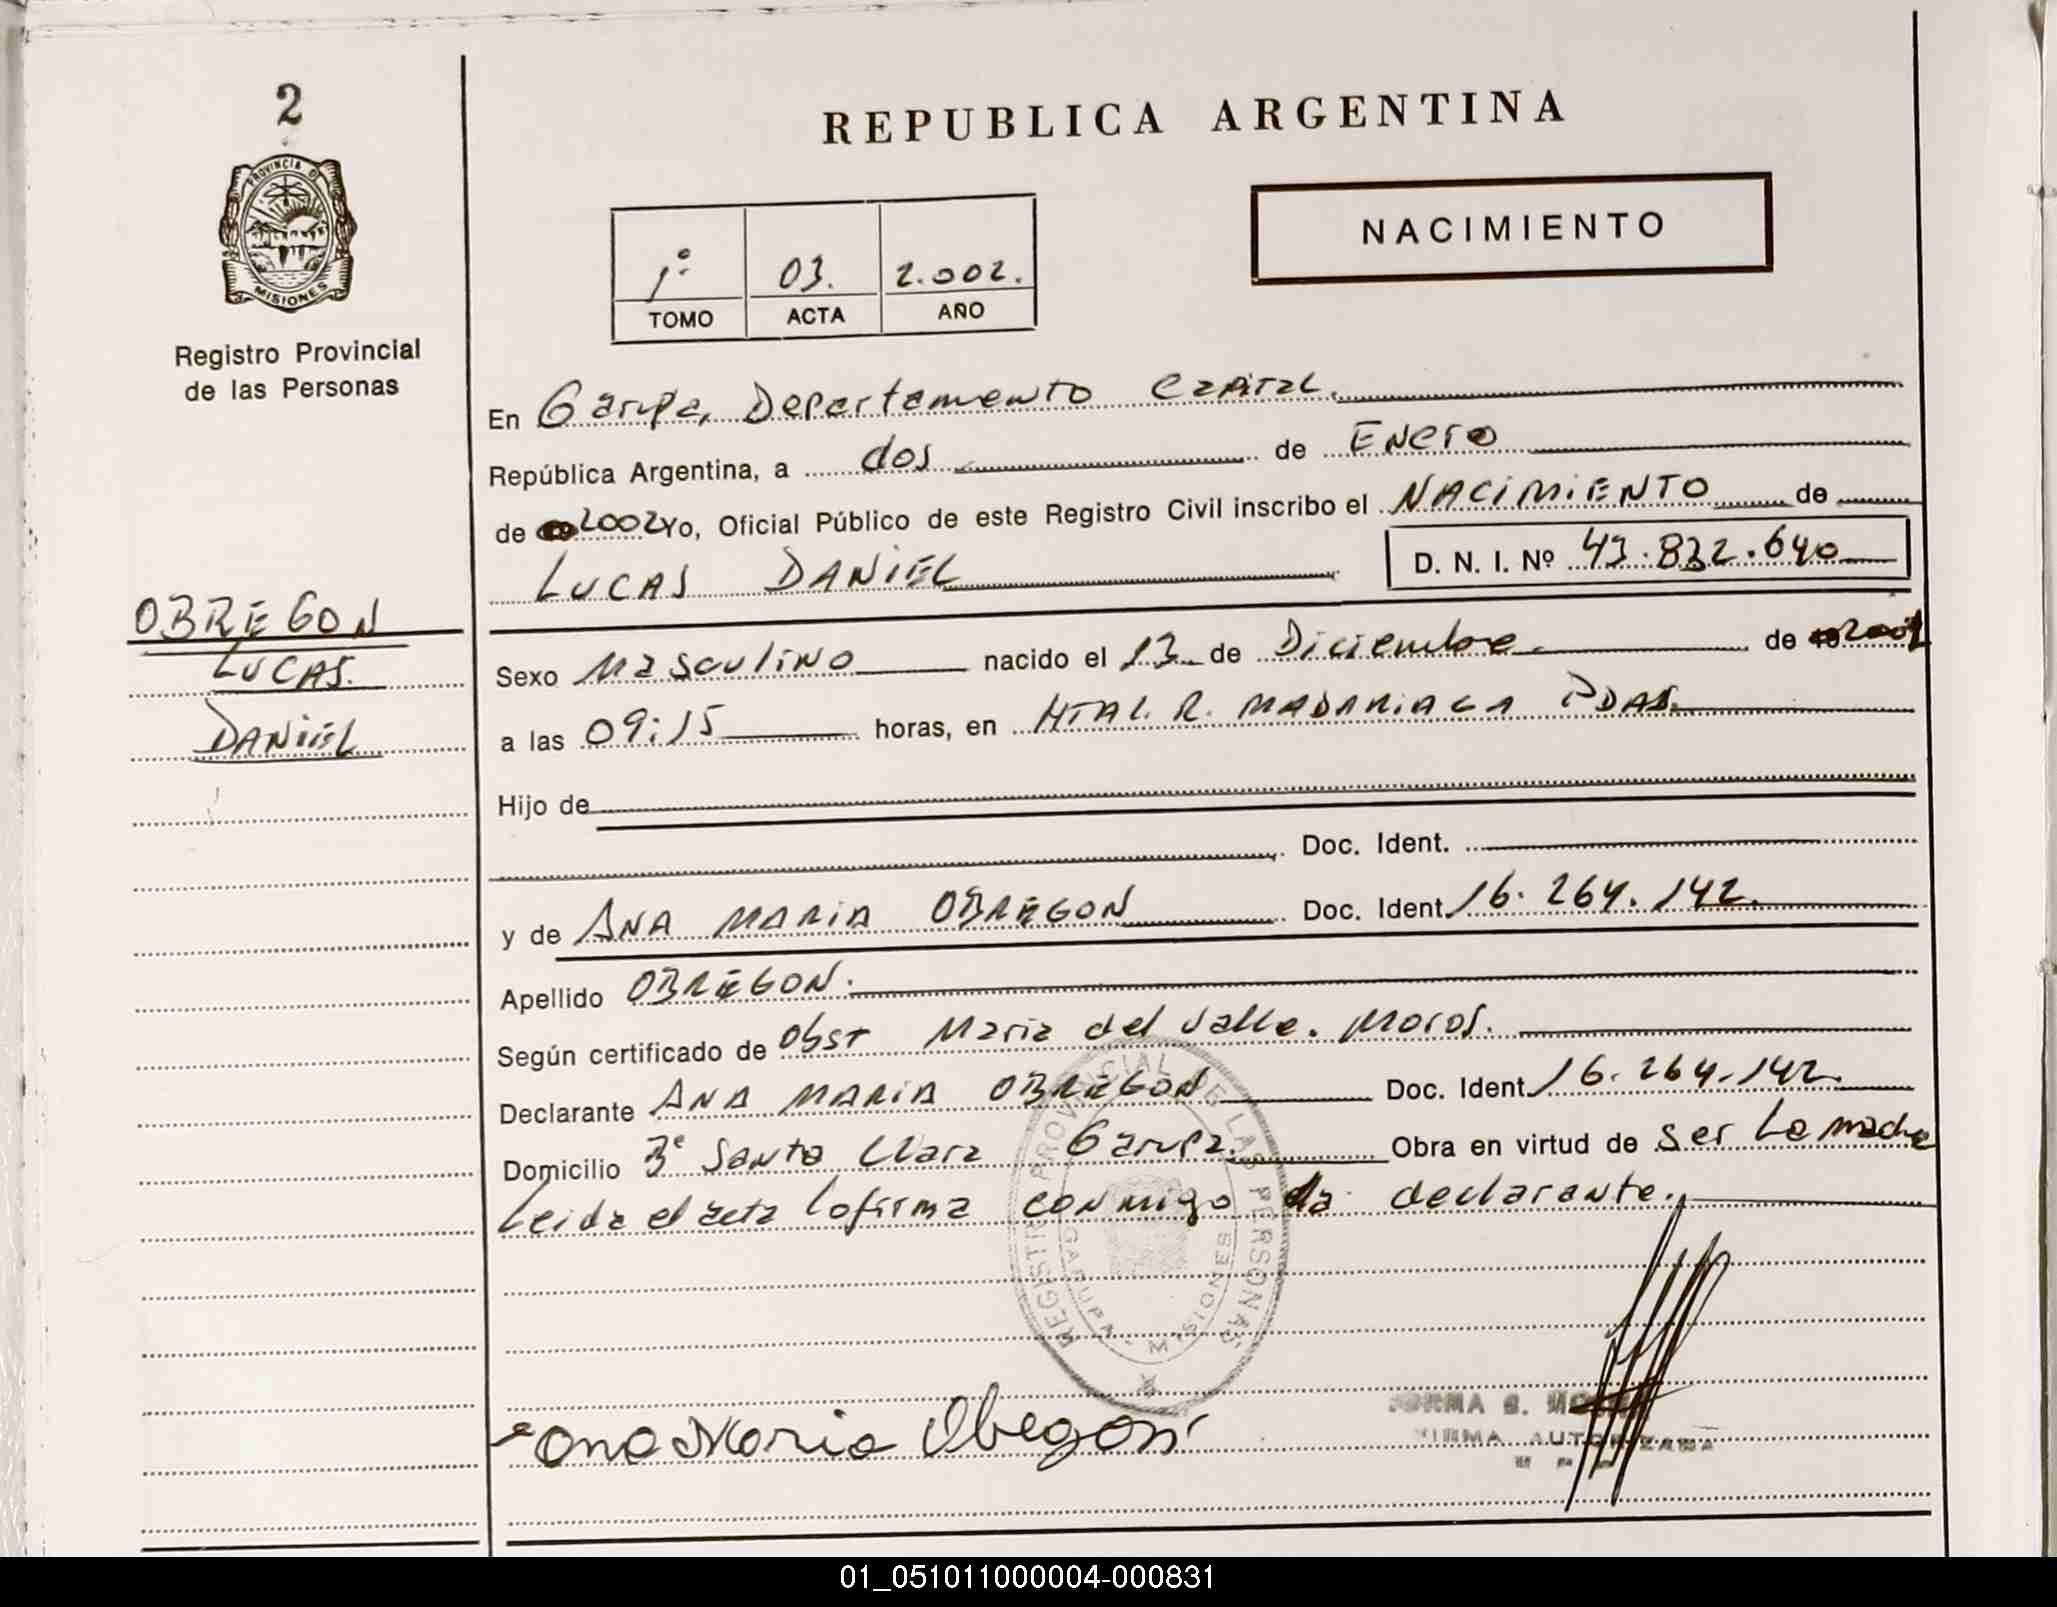 2
REPUBLICA ARGENTINA
PROVINCIA D
MISIONES
Registro Provincial
de las Personas
NACIMIENTO
1º 03. 2.002.
TOMO ACTA AÑO
En Garupa, Departamento Capital.
República Argentina, a dos de Enero
de 2002 Yo, Oficial Público de este Registro Civil inscribo el NACIMIENTO de
LUCAS DANIEL D. N. I. Nº 43.832.640
OBREGON
LUCAS.
DANIEL
Sexo Masculino nacido el 13 de Diciembre. de
a las 09:15 horas, en HTAL. R. MADARIAGA PDAS.
Hijo de
Doc. Ident.
y de ANA MARIA OBREGON Doc. Ident. 16.264.142.
Apellido OBREGON.
Según certificado de Obst Maria del Valle. Moros.
Declarante ANA MARIA OBREGON Doc. Ident. 16.264.142.
Domicilio Bº Santa Clara Garupa. Obra en virtud de ser la madre
Leida el acta la firma conmigo la declarante.
REGISTRO PROVINCIAL DE LAS PERSONAS
GARUPA - MISIONES
Ana Maria Obegon
FIRMA AUTORIZADA
01_051011000004-000831